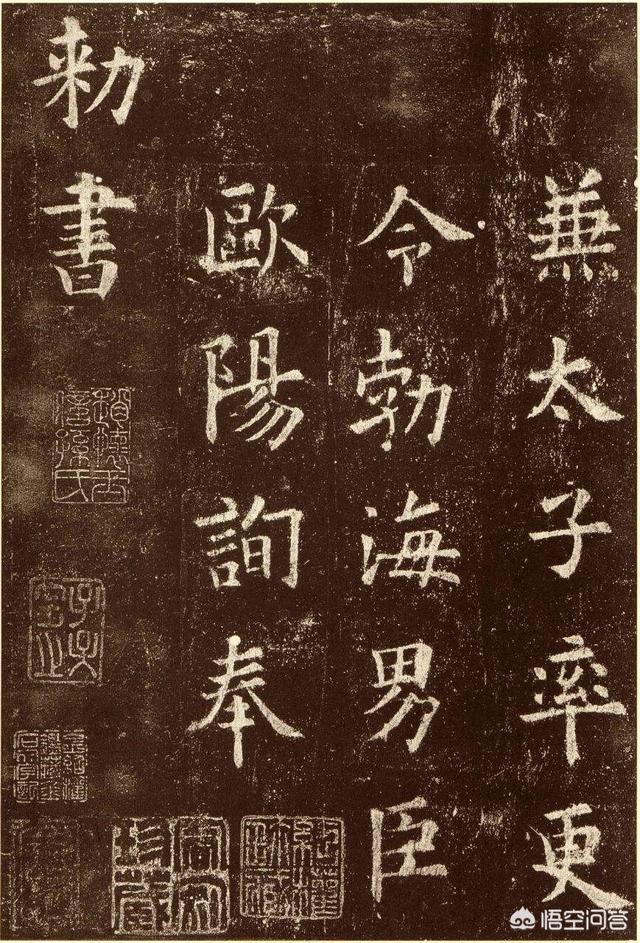 兼太子率更
令勃海男臣
歐陽詢奉
勅書
悟空问答